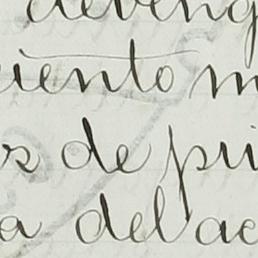 deveng
iento m
s de pri
a del ac